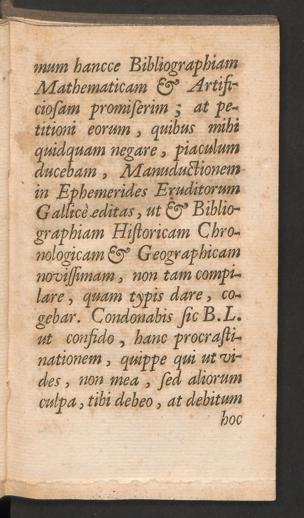 mum hancce Bibliographiam
Mathematicam & Artifi-
cioſam promiſerim ; at pe-
titioni eorum , quibus mihi
quidquam negare , piaculum
ducebam , Manuductionem
in Ephemerides Eruditorum
Gallicè editas , ut & Biblio-
graphiam Hiſtoricam Chro-
nologicam & Geographicam
noviſſimam , non tam compi-
lare , quam typis dare , co-
gebar. Condonabis ſic B. L.
ut confido , hanc procraſti-
nationem , quippe qui ut vi-
des , non mea , ſed aliorum
culpa , tibi debeo , at debitum
hoc